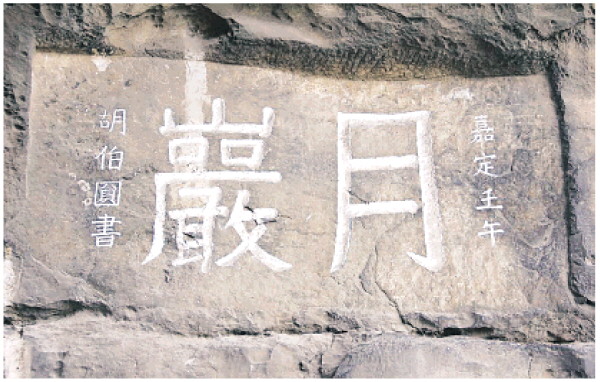 嘉定壬午
月巖
胡伯圓書